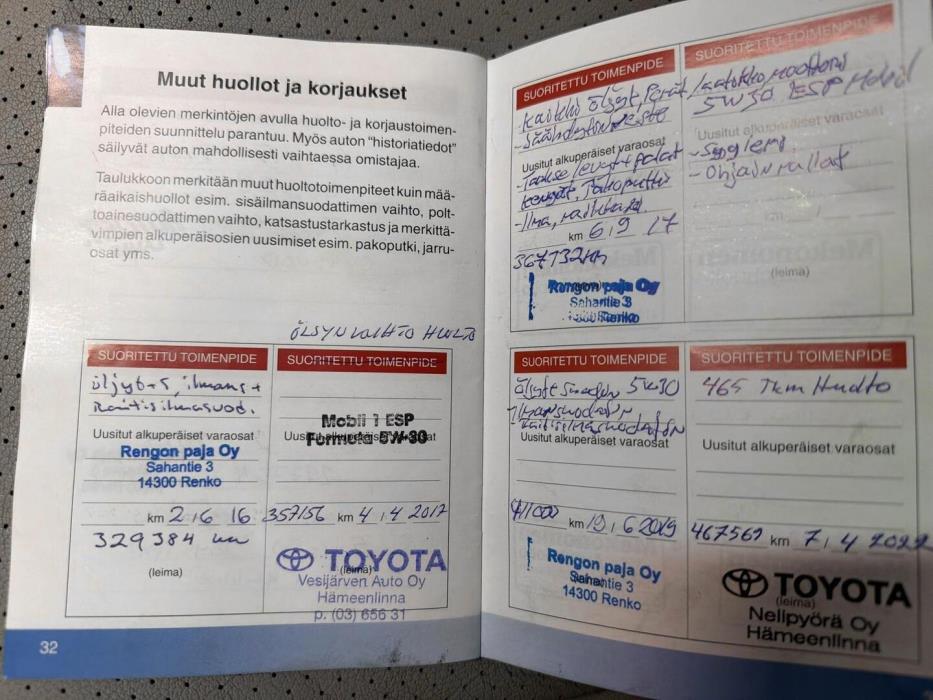 Muut huollot ja korjaukset
Alla olevien merkintöjen avulla huolto- ja korjaustoimen-
piteiden suunnittelu parantuu. Myös auton "historiatiedot"
säilyvät auton mahdollisesti vaihtaessa omistajaa.
Taulukkoon merkitään muut huoltotoimenpiteet kuin mää-
räaikaishuollot esim. sisäilmansuodattimen vaihto, polt-
toainesuodattimen vaihto, katsastustarkastus ja merkittä-
vimpien alkuperäisosien uusimiset esim. pakoputki, jarru-
osat yms.
ÖLJYNVAIHTO HUOLTO
SUORITETTU TOIMENPIDE
öljyt+s, ilmans+
Raitisilmasuod.
Uusitut alkuperäiset varaosat
Rengon paja Oy
Sahantie 3
14300 Renko
km 2,6 16
329384 km
(leima)
SUORITETTU TOIMENPIDE
Mobil 1 ESP
Formula 5W-30
Uusitut alkuperäiset varaosat
357156 km 4,4 2017
(leima)
TOYOTA
Vesijärven Auto Oy
Hämeenlinna
p. (03) 656 31
32
SUORITETTU TOIMENPIDE
Kaikki öljyt, Perät, laatikko, moottori
Jäähdytinneste
Uusitut alkuperäiset varaosat
km 6,9 17
367732km
Rengon paja Oy
Sahantie 3
14300 Renko
SUORITETTU TOIMENPIDE
5W30 ESP Mobil
Uusitut alkuperäiset varaosat
- Ohjainrullat
km
(leima)
SUORITETTU TOIMENPIDE
5W30
Ilmansuodatin
Raitisilmasuodatin
Uusitut alkuperäiset varaosat
km 19,6 2019
Rengon paja Oy
Sahantie 3
14300 Renko
SUORITETTU TOIMENPIDE
465 Tkm Huolto
Uusitut alkuperäiset varaosat
467569 km 7,4 2022
TOYOTA
(leima)
Nelipyörä Oy
Hämeenlinna